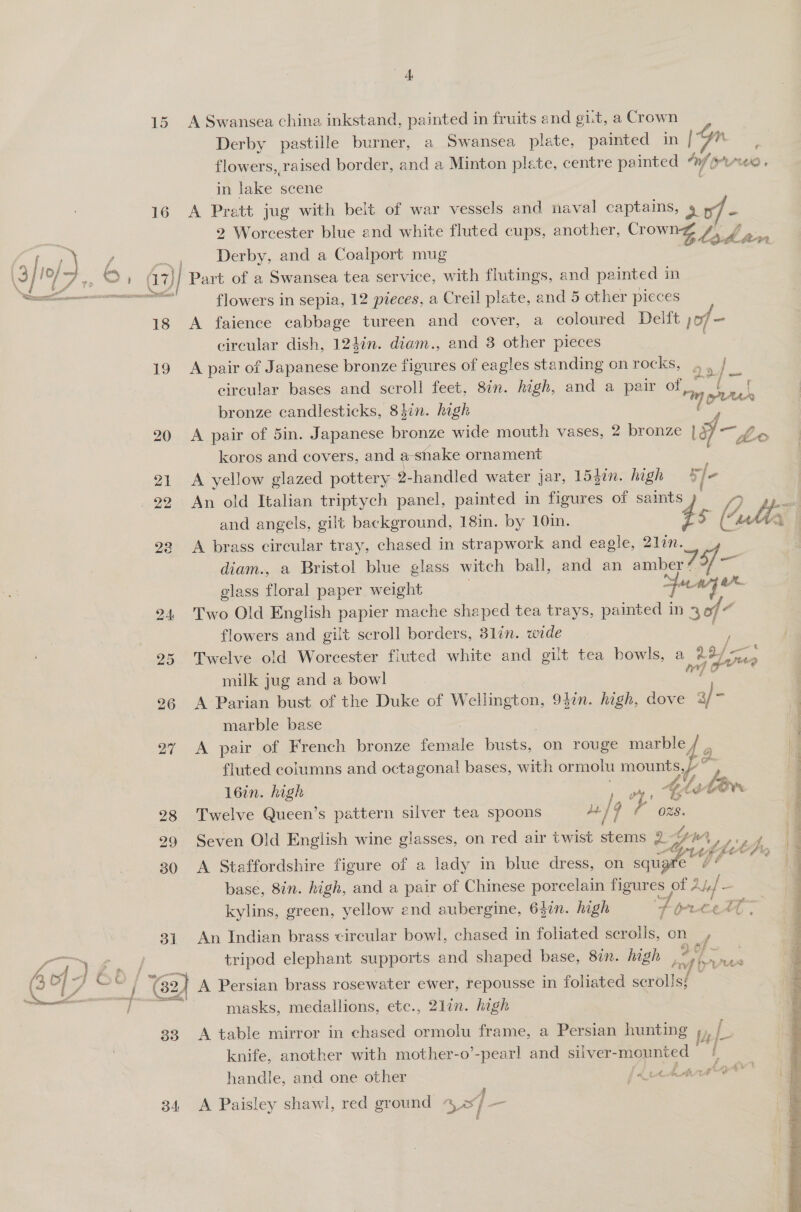 4
15 A Swansea china inkstand, painted in fruits and gilt, a Crown
Derby pastille burner, a Swansea plate, painted in
flowers, raised border, and a Minton plate, centre painted
in lake scene
16 A Pratt jug with belt of war vessels and naval captains,
2 Worcester blue and white fluted cups, another, Crown
Derby, and a Coalport mug
17 Part of a Swansea tea service, with flutings, and painted in
flowers in sepia, 12 pieces, a Creil plate, and 5 other pieces
18 A faience cabbage tureen and cover, a coloured Delft
circular dish, 12½in. diam., and 3 other pieces
19 A pair of Japanese bronze figures of eagles standing on rocks,
circular bases and scroll feet, 8in. high, and a pair of
bronze candlesticks, 8½in. high
20 A pair of 5in. Japanese bronze wide mouth vases, 2 bronze
koros and covers, and a snake ornament
21 A yellow glazed pottery 2-handled water jar, 15½in. high 5/-
22 An old Italian triptych panel, painted in figures of saints
and angels, gilt background, 18in. by 10in.
23 A brass circular tray, chased in strapwork and eagle, 21in.
diam., a Bristol blue glass witch ball, and an amber
glass floral paper weight
24 Two Old English papier mache shaped tea trays, painted in
flowers and gilt scroll borders, 31in. wide
25 Twelve old Worcester fluted white and gilt tea bowls, a
milk jug and a bowl
26 A Parian bust of the Duke of Wellington, 9½in. high, dove
marble base
27 A pair of French bronze female busts, on rouge marble
fluted columns and octagonal bases, with ormolu mounts,
16in. high
28 Twelve Queen's pattern silver tea spoons ozs.
29 Seven Old English wine glasses, on red air twist stems
30 A Staffordshire figure of a lady in blue dress, on square
base, 8in. high, and a pair of Chinese porcelain figures of
kylins, green, yellow and aubergine, 6½in. high
31 An Indian brass circular bowl, chased in foliated scrolls, on
tripod elephant supports and shaped base, 8in. high
32 A Persian brass rosewater ewer, repousse in foliated scrolls,
masks, medallions, etc., 21in. high
33 A table mirror in chased ormolu frame, a Persian hunting
knife, another with mother-o'-pearl and silver-mounted
handle, and one other
34 A Paisley shawl, red ground